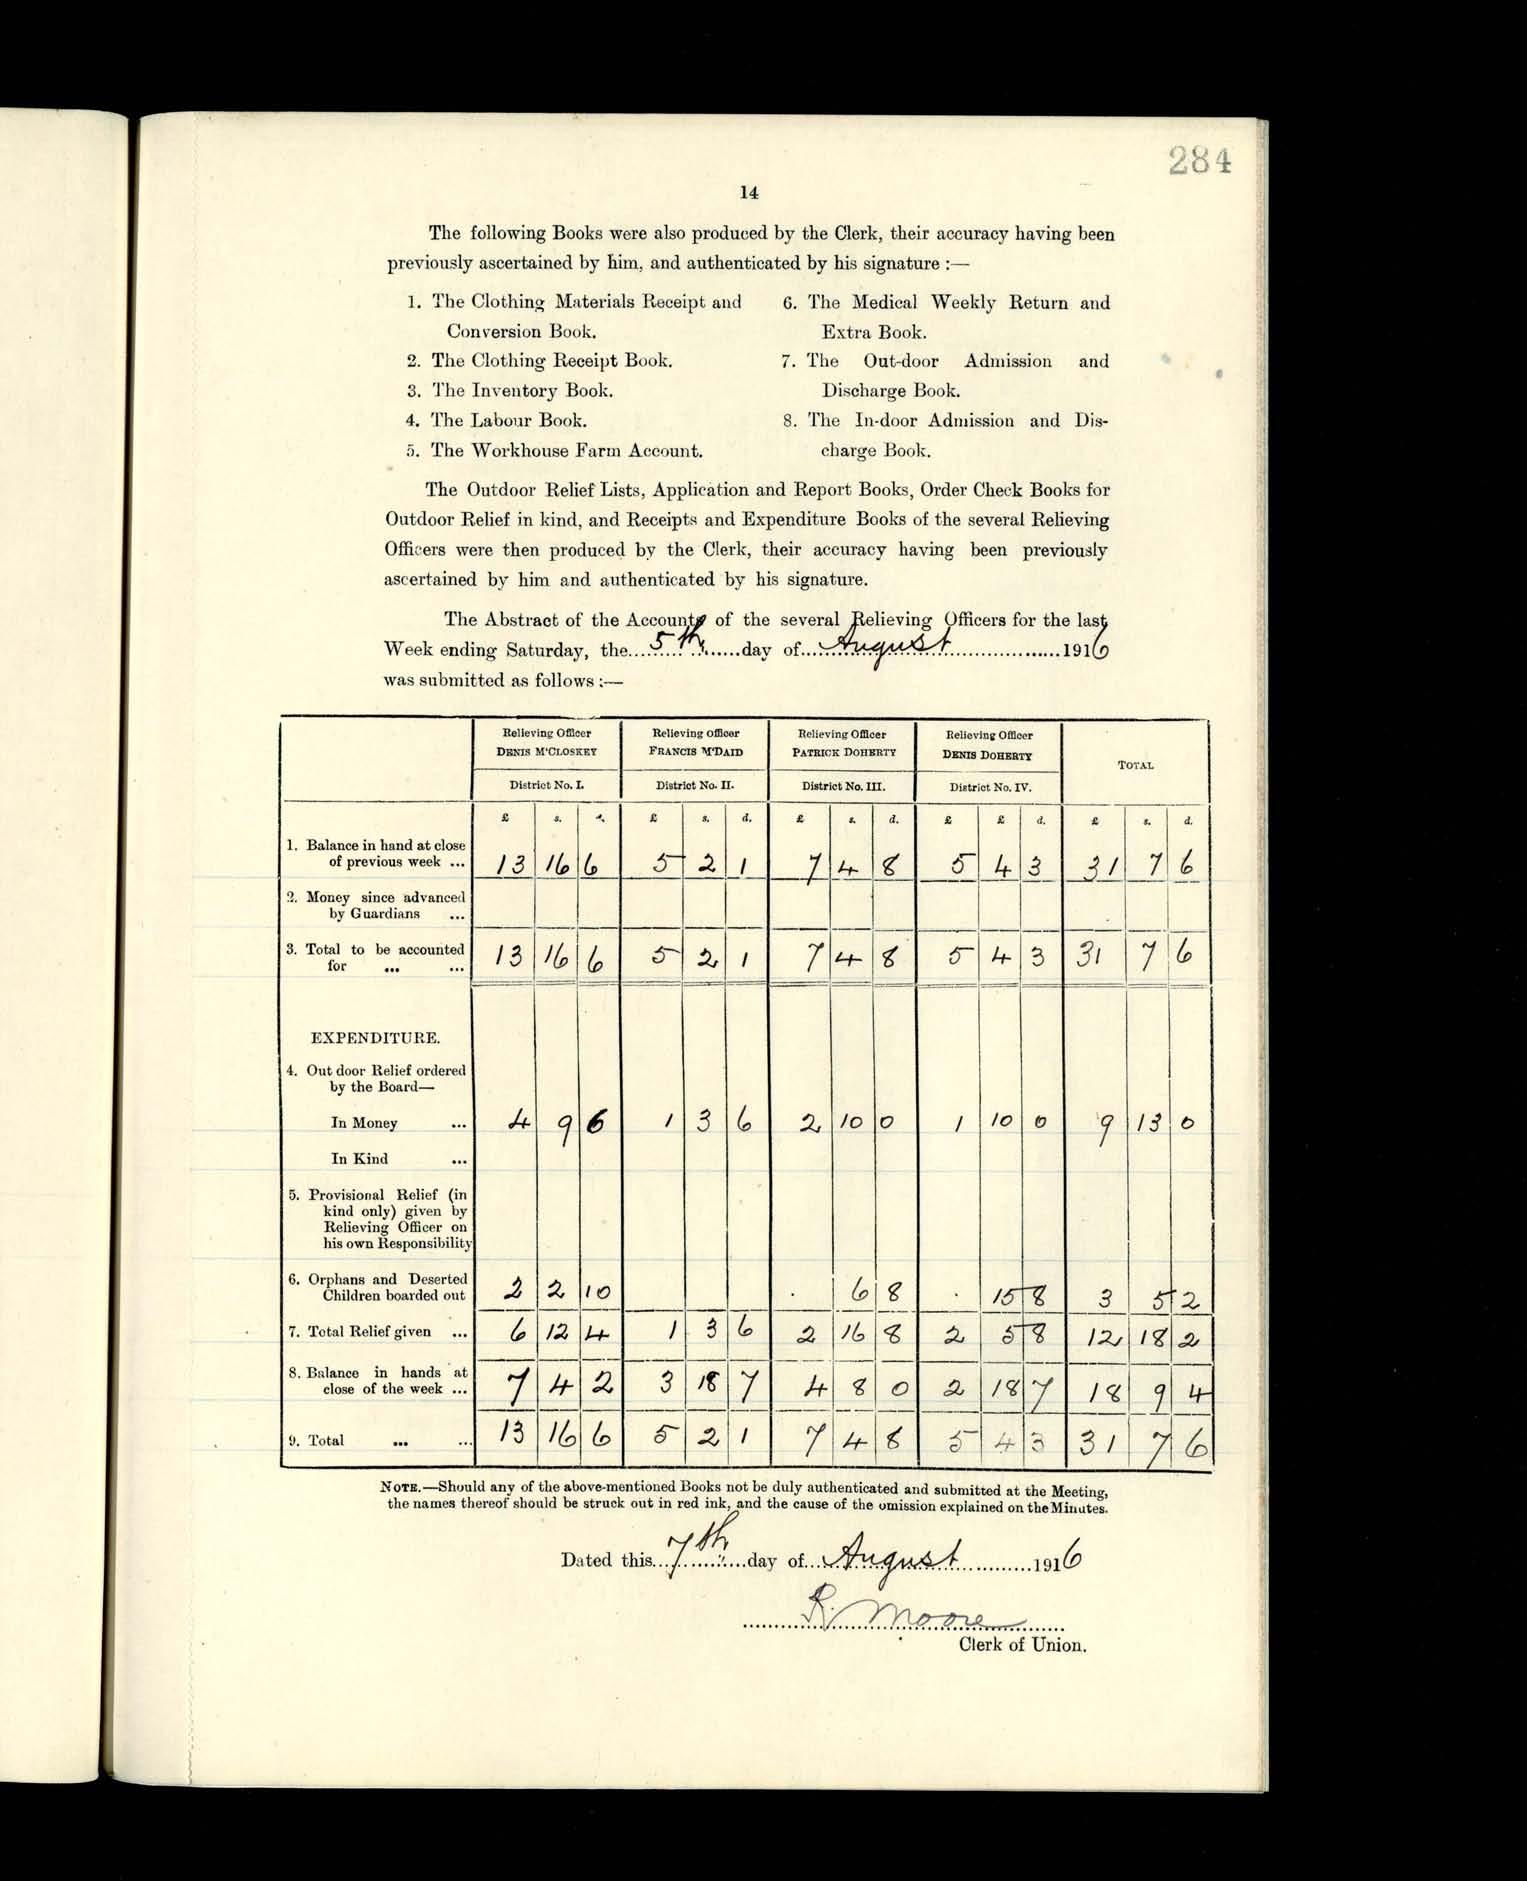 284
14
The following Books were also produced by the Clerk, their accuracy having been
previously ascertained by him, and authenticated by his signature :—
1. The Clothing Materials Receipt and
Conversion Book.
2. The Clothing Receipt Book.
3. The Inventory Book.
4. The Labour Book.
5. The Workhouse Farm Account.
6. The Medical Weekly Return and
Extra Book.
7. The Out-door Admission and
Discharge Book.
8. The In-door Admission and Dis-
charge Book.
The Outdoor Relief Lists, Application and Report Books, Order Check Books for
Outdoor Relief in kind, and Receipts and Expenditure Books of the several Relieving
Officers were then produced by the Clerk, their accuracy having been previously
ascertained by him and authenticated by his signature.
The Abstract of the Accounts of the several Relieving Officers for the last
Week ending Saturday, the 5th day of August 1916
was submitted as follows :—
Relieving Officer DENIS M'CLOSKEY District No. I.
Relieving Officer FRANCIS M'DAID District No. II.
Relieving Officer PATRICK DOHERTY District No. III.
Relieving Officer DENIS DOHERTY District No. IV.
TOTAL
£ s. d. £ s. d. £ s. d. £ £ d. £ s. d.
1. Balance in hand at close
of previous week ... 13 16 6 5 2 1 7 4 8 5 4 3 31 7 6
2. Money since advanced
by Guardians ...
3. Total to be accounted
for ... ... 13 16 6 5 2 1 7 4 8 5 4 3 31 7 6
EXPENDITURE.
4. Out door Relief ordered
by the Board—
In Money ... 4 9 6 1 3 6 2 10 0 1 10 0 9 13 0
In Kind ...
5. Provisional Relief (in
kind only) given by
Relieving Officer on
his own Responsibility
6. Orphans and Deserted
Children boarded out 2 2 10 . 6 8 . 15 8 3 5 2
7. Total Relief given ... 6 12 4 1 3 6 2 16 8 2 5 8 12 18 2
8. Balance in hands at
close of the week ... 7 4 2 3 18 7 4 8 0 2 18 7 18 9 4
9. Total ... ... 13 16 6 5 2 1 7 4 8 5 4 3 31 7 6
NOTE.—Should any of the above-mentioned Books not be duly authenticated and submitted at the Meeting,
the names thereof should be struck out in red ink, and the cause of the omission explained on the Minutes.
Dated this 7th day of August 1916
R. Moore
Clerk of Union.